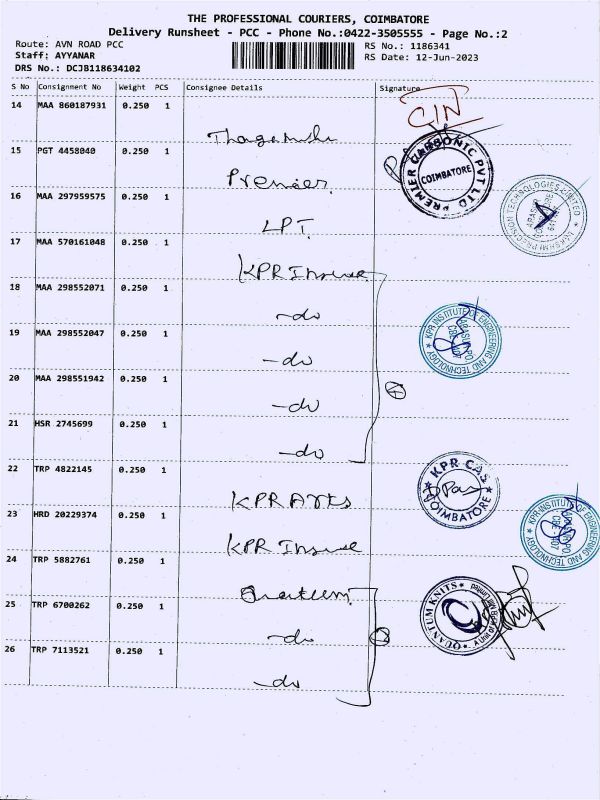 THE PROFESSIONAL COURIERS, COIMBATORE
Delivery Runsheet - PCC - Phone No.:0422-3505555 - Page No.:2
Route: AVN ROAD PCC
Staff: AYYANAR
DRS No.: DCJB118634102
RS No.: 1186341
RS Date: 12-Jun-2023
S No Consignment No Weight PCS Consignee Details Signature
14 MAA 860187931 0.250 1
CIN
15 PGT 4458040 0.250 1 Premier
PREMIER CARBONIC PVT LTD COIMBATORE
16 MAA 297959575 0.250 1 LPT
LAKSHMI PRECISION TECHNOLOGIES LIMITED
17 MAA 570161048 0.250 1 KPR
18 MAA 298552071 0.250 1 -do
19 MAA 298552047 0.250 1 -do
KPR INSTITUTE OF ENGINEERING AND TECHNOLOGY
20 MAA 298551942 0.250 1 -do
21 HSR 2745699 0.250 1 -do
22 TRP 4822145 0.250 1 KPR Arts
KPR CAS COIMBATORE
23 HRD 20229374 0.250 1 KPR
KPR INSTITUTE OF ENGINEERING AND TECHNOLOGY
24 TRP 5882761 0.250 1
QUANTUM KNITS
25 TRP 6700262 0.250 1 -do
26 TRP 7113521 0.250 1 -do